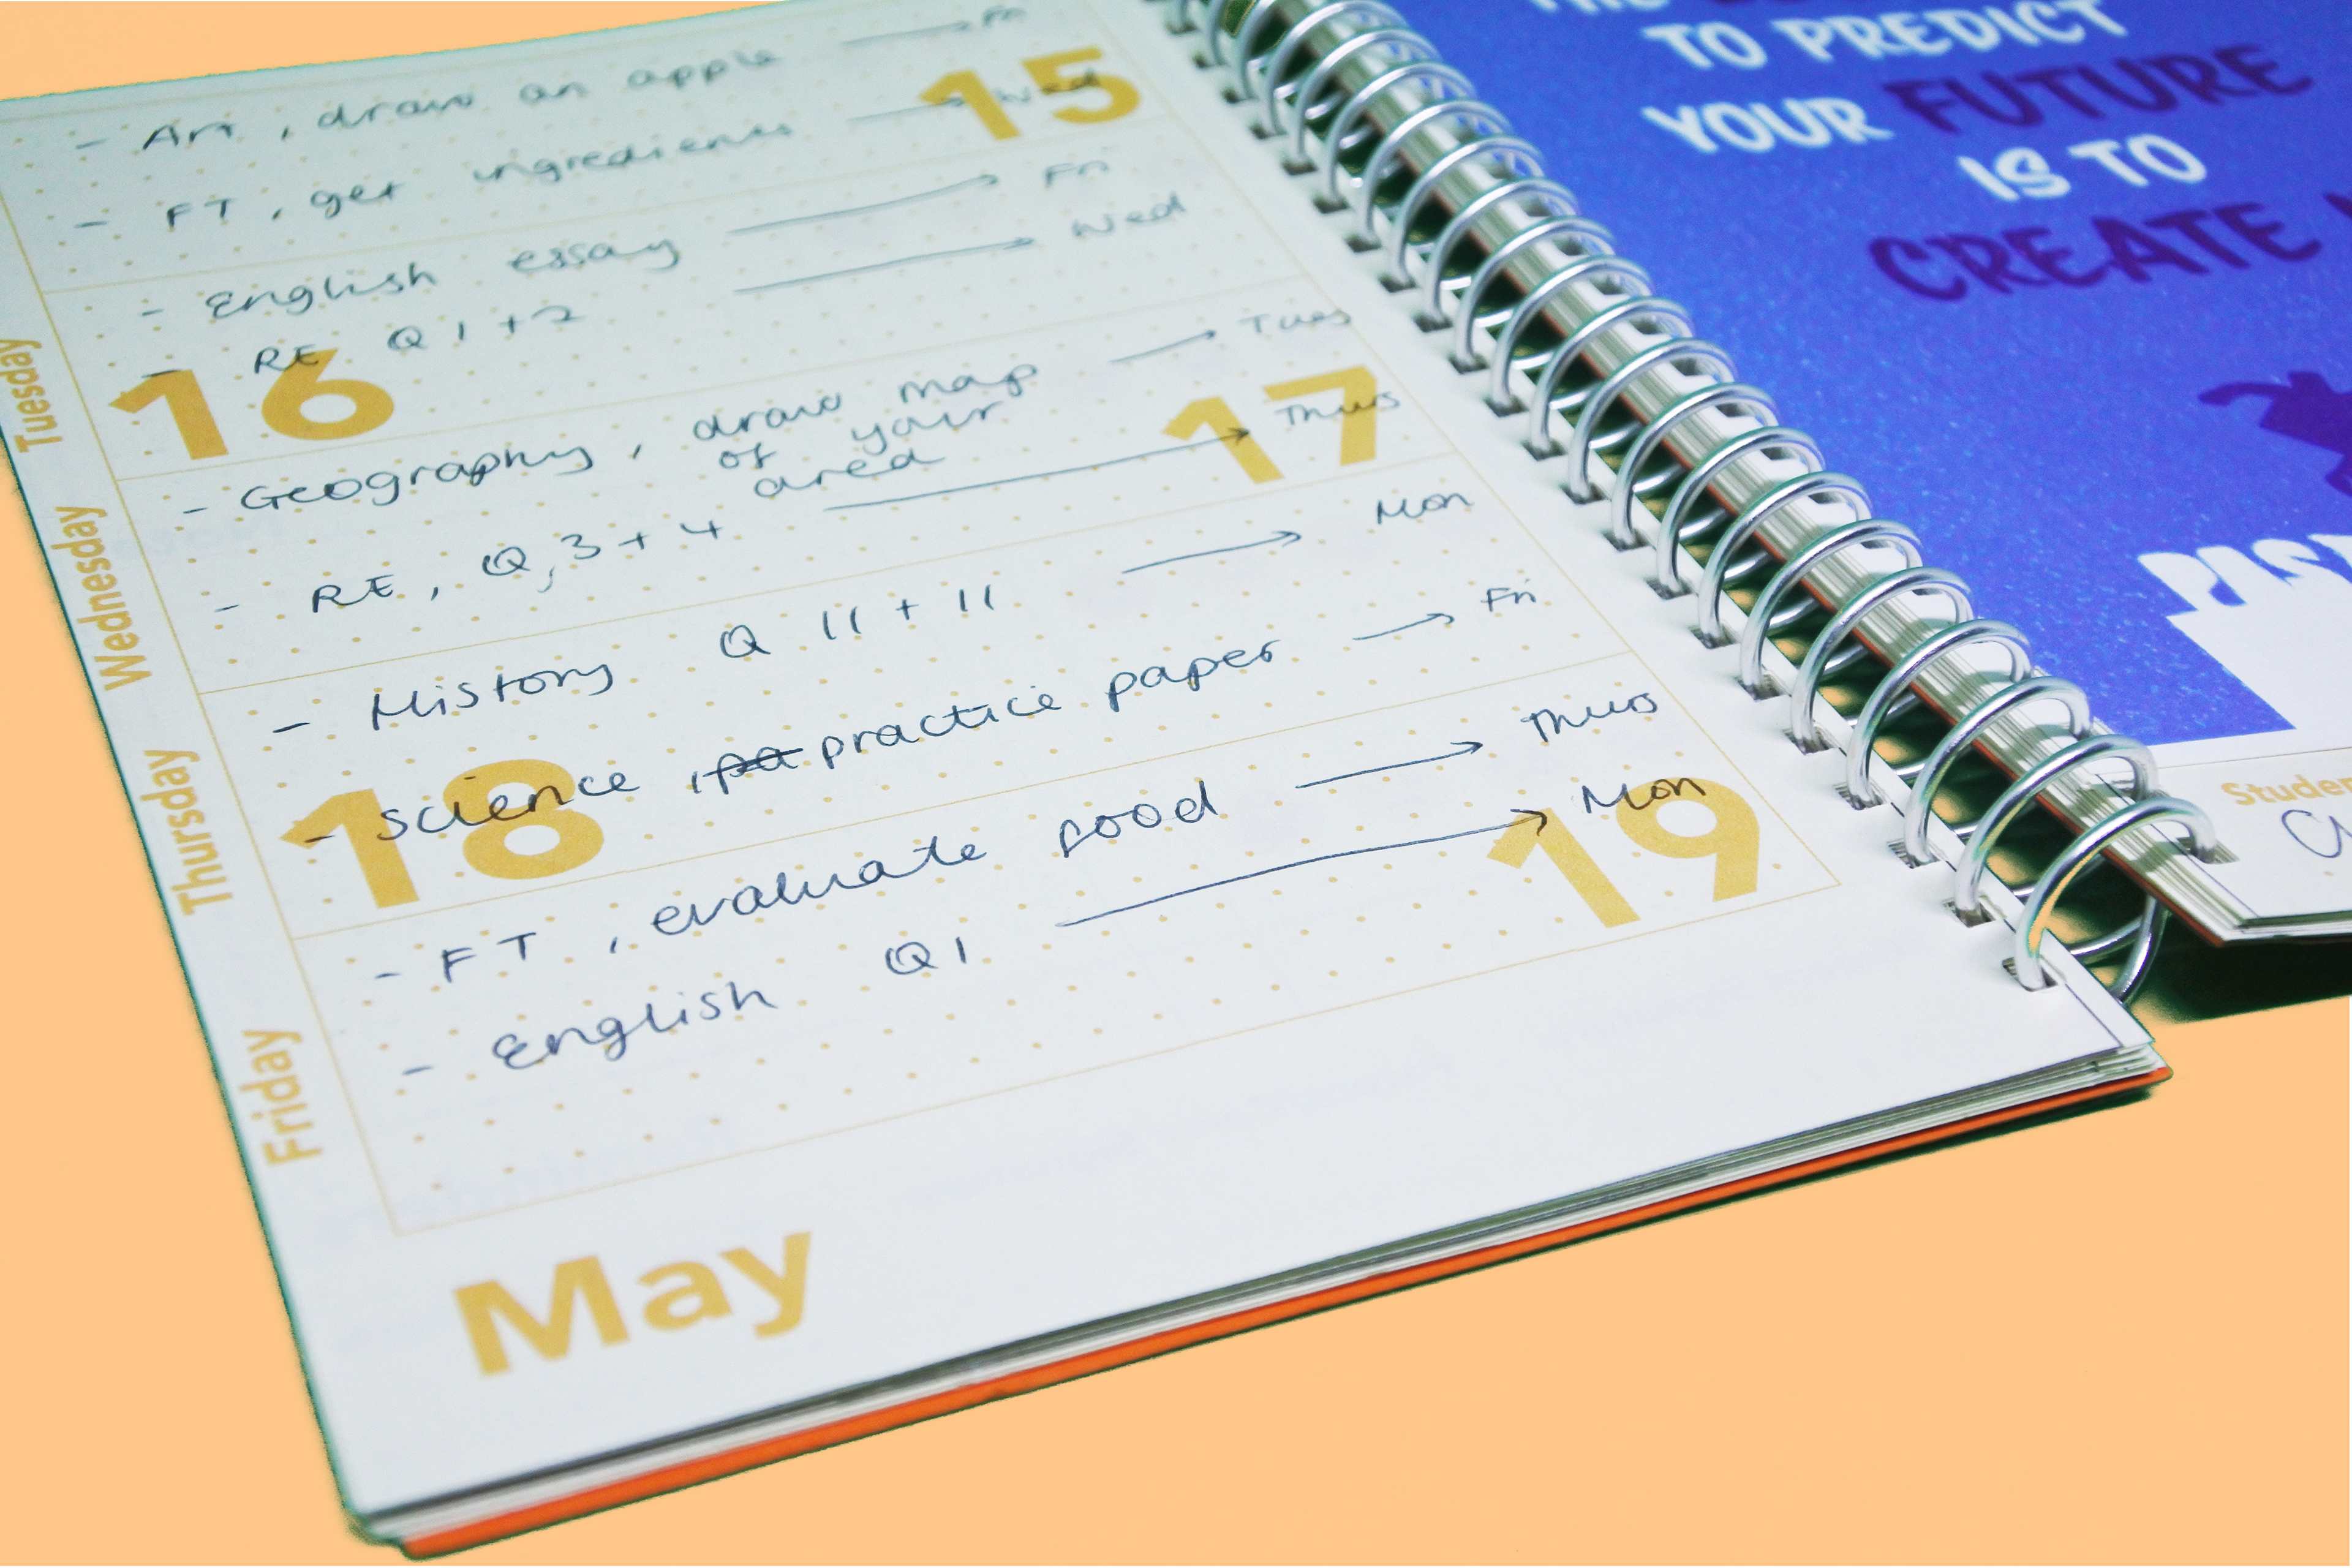 - Art, draw an apple → Fri
15
- FT, get ingredients → Wed
Tuesday
- English essay → Fri
- RE Q 1 + 2 → Wed
16
Wednesday
- Geography, draw map → Tues
of your
area
17
- RE, Q, 3 + 4 → Thurs
Thursday
- History Q 11 + 11 → Mon
- science, practice paper → Fri
18
Friday
- FT, evaluate food → Thurs
- English Q1 → Mon
19
May
TO PREDICT
YOUR FUTURE
IS TO
CREATE